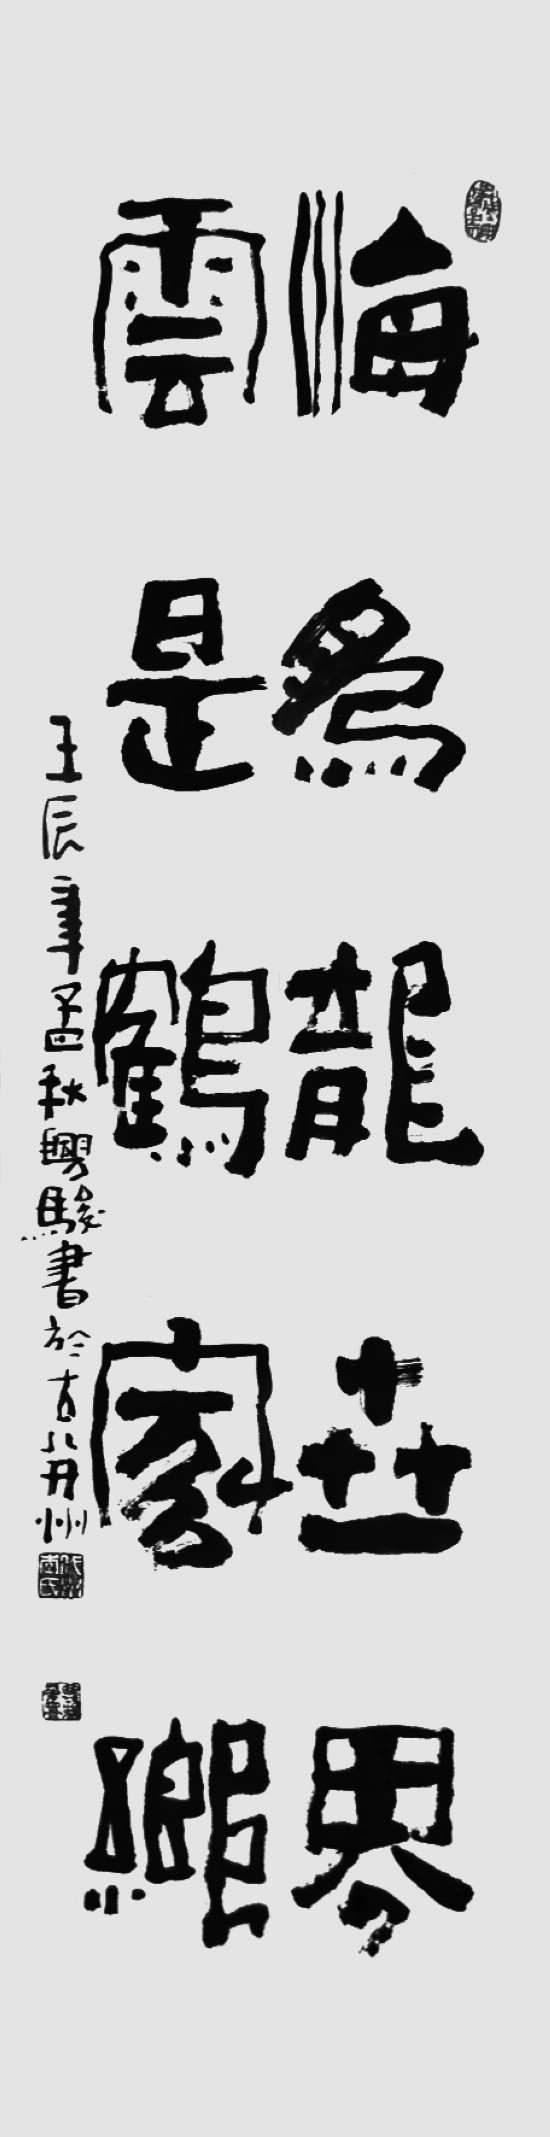 海為龍世界
雲是鶴家鄉
壬辰年孟秋興駿書於古并州